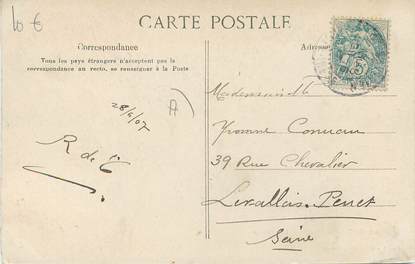 10 €
CARTE POSTALE
Correspondance
Tous les pays étrangers n'acceptent pas la
correspondance au recto, se renseigner à la Poste
Adresse
5
Mademoiselle
28/6/07
A)
Yvonne
R de C
39 Rue Chevalier
Levallois-Perret
Seine